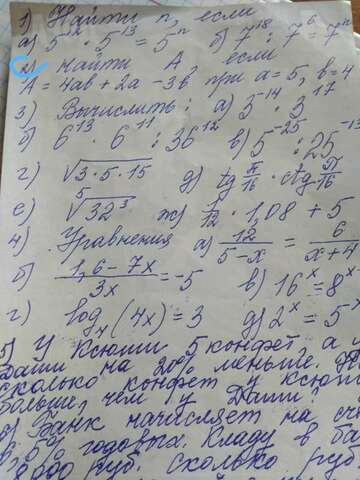 1) Найти n, если
а) 5⁻¹² · 5⁻¹³ = 5ⁿ б) 7¹⁸ : 7⁶ = 7ⁿ
2) найти А, если
А = 4ab + 2a - 3b при a = 5, b = 4
3) Вычислить: а) 5⁻¹⁴ · 3¹⁷
б) 6¹³ · 6¹¹ : 36¹² в) 5⁻²⁵ : 25⁻¹³
г) √3·5·15 д) tg π/16 · ctg π/16
е) ⁵√32³ ж) 1/12 · 1,08 + 5
4) Уравнения а) 12/(5-x) = 6/(x+4)
б) (1,6-7x)/3x = -5 в) 16ˣ = 8ˣ
г) log₄(4x) = 3 д) 2ˣ = 5⁻ˣ
5) У Ксюши 5 конфет, а у
Даши на 20% меньше.
сколько конфет у Ксюши
больше, чем у Даши?
Банк начисляет на
годовых. Кладу в
руб. Сколько руб